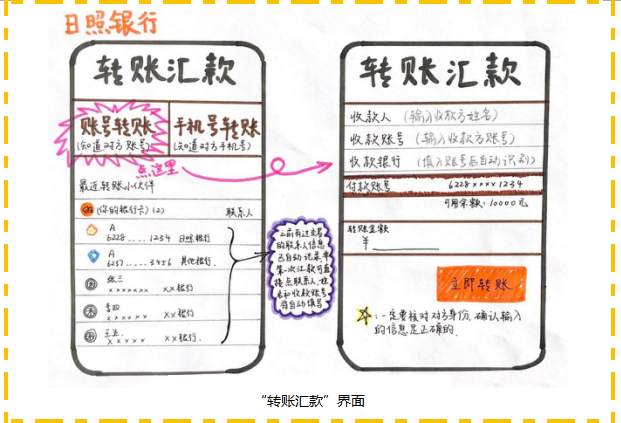 日照银行
转账汇款
账号转账
(知道对方账号)
手机号转账
(知道对方手机号)
点这里
最近转账小伙伴
(你的银行卡)(2)
联系人
A
6228.....1234 日照银行
A
6237.....3456 其他银行
张三
××××××× ××银行
李四
×××××× ××银行
王五
×××××× ××银行
以前有过交易
的联系人信息
已自动记录,非
第一次汇款可直
接点联系人,姓
名和收款账号
将自动填写
转账汇款
收款人 (输入收款方姓名)
收款账号 (输入收款方账号)
收款银行 (填入账号后自动识别)
付款账号 6228××××1234
可用余额:10000元
转账金额
¥
立即转账
:一定要核对对方身份,确认输入
的信息是正确的.
“转账汇款”界面